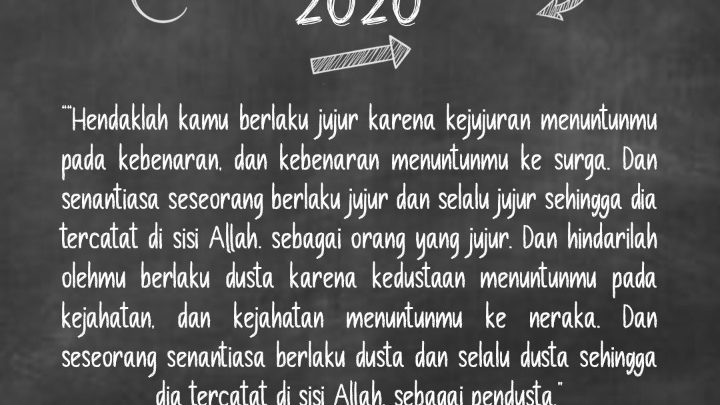 2020
""Hendaklah kamu berlaku jujur karena kejujuran menuntunmu
pada kebenaran, dan kebenaran menuntunmu ke surga. Dan
senantiasa seseorang berlaku jujur dan selalu jujur sehingga dia
tercatat di sisi Allah. sebagai orang yang jujur. Dan hindarilah
olehmu berlaku dusta karena kedustaan menuntunmu pada
kejahatan, dan kejahatan menuntunmu ke neraka. Dan
seseorang senantiasa berlaku dusta dan selalu dusta sehingga
dia tercatat di sisi Allah. sebagai pendusta."